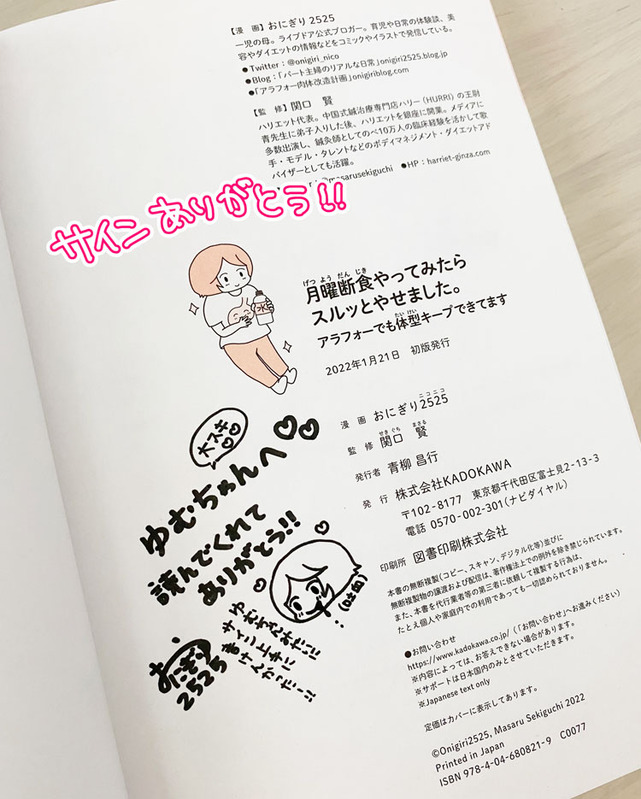 【漫 画】おにぎり2525
一児の母。ライブドア公式ブロガー。育児や日常の体験談、美
容やダイエットの情報などをコミックやイラストで発信している。
●Twitter：@onigiri_nico
●Blog：「パート主婦のリアルな日常」onigiri2525.blog.jp
●「アラフォー肉体改造計画」onigiriblog.com
【監 修】関口 賢
ハリエット代表。中国式鍼治療専門店ハリー（HURRI）の王尉
青先生に弟子入りした後、ハリエットを銀座に開業。メディアに
多数出演し、鍼灸師としてのべ10万人の臨床経験を活かして歌
手・モデル・タレントなどのボディマネジメント・ダイエットアド
バイザーとしても活躍。
@masarusekiguchi ●HP：harriet-ginza.com
サインありがとう!!
げつ よう だん じき
月曜断食やってみたら
スルッとやせました。
たい けい
アラフォーでも体型キープできてます
2022年1月21日 初版発行
ニコニコ
漫 画 おにぎり2525
せき ぐち まさる
監 修 関口 賢
発行者 青柳 昌行
発 行 株式会社KADOKAWA
〒102-8177 東京都千代田区富士見2-13-3
電話 0570-002-301（ナビダイヤル）
印刷所 図書印刷株式会社
本書の無断複製（コピー、スキャン、デジタル化等）並びに
無断複製物の譲渡および配信は、著作権法上での例外を除き禁じられています。
また、本書を代行業者等の第三者に依頼して複製する行為は、
たとえ個人や家庭内での利用であっても一切認められておりません。
●お問い合わせ
https://www.kadokawa.co.jp/（「お問い合わせ」へお進みください）
※内容によっては、お答えできない場合があります。
※サポートは日本国内のみとさせていただきます。
※Japanese text only
定価はカバーに表示してあります。
©Onigiri2525, Masaru Sekiguchi 2022
Printed in Japan
ISBN 978-4-04-680821-9 C0077
大スキ
ゆむちゃんへ
読んでくれて
ありがとう!!
ゆむちゃんみたいに
サイン上手に
書けんかったー!!
おにぎり
2525